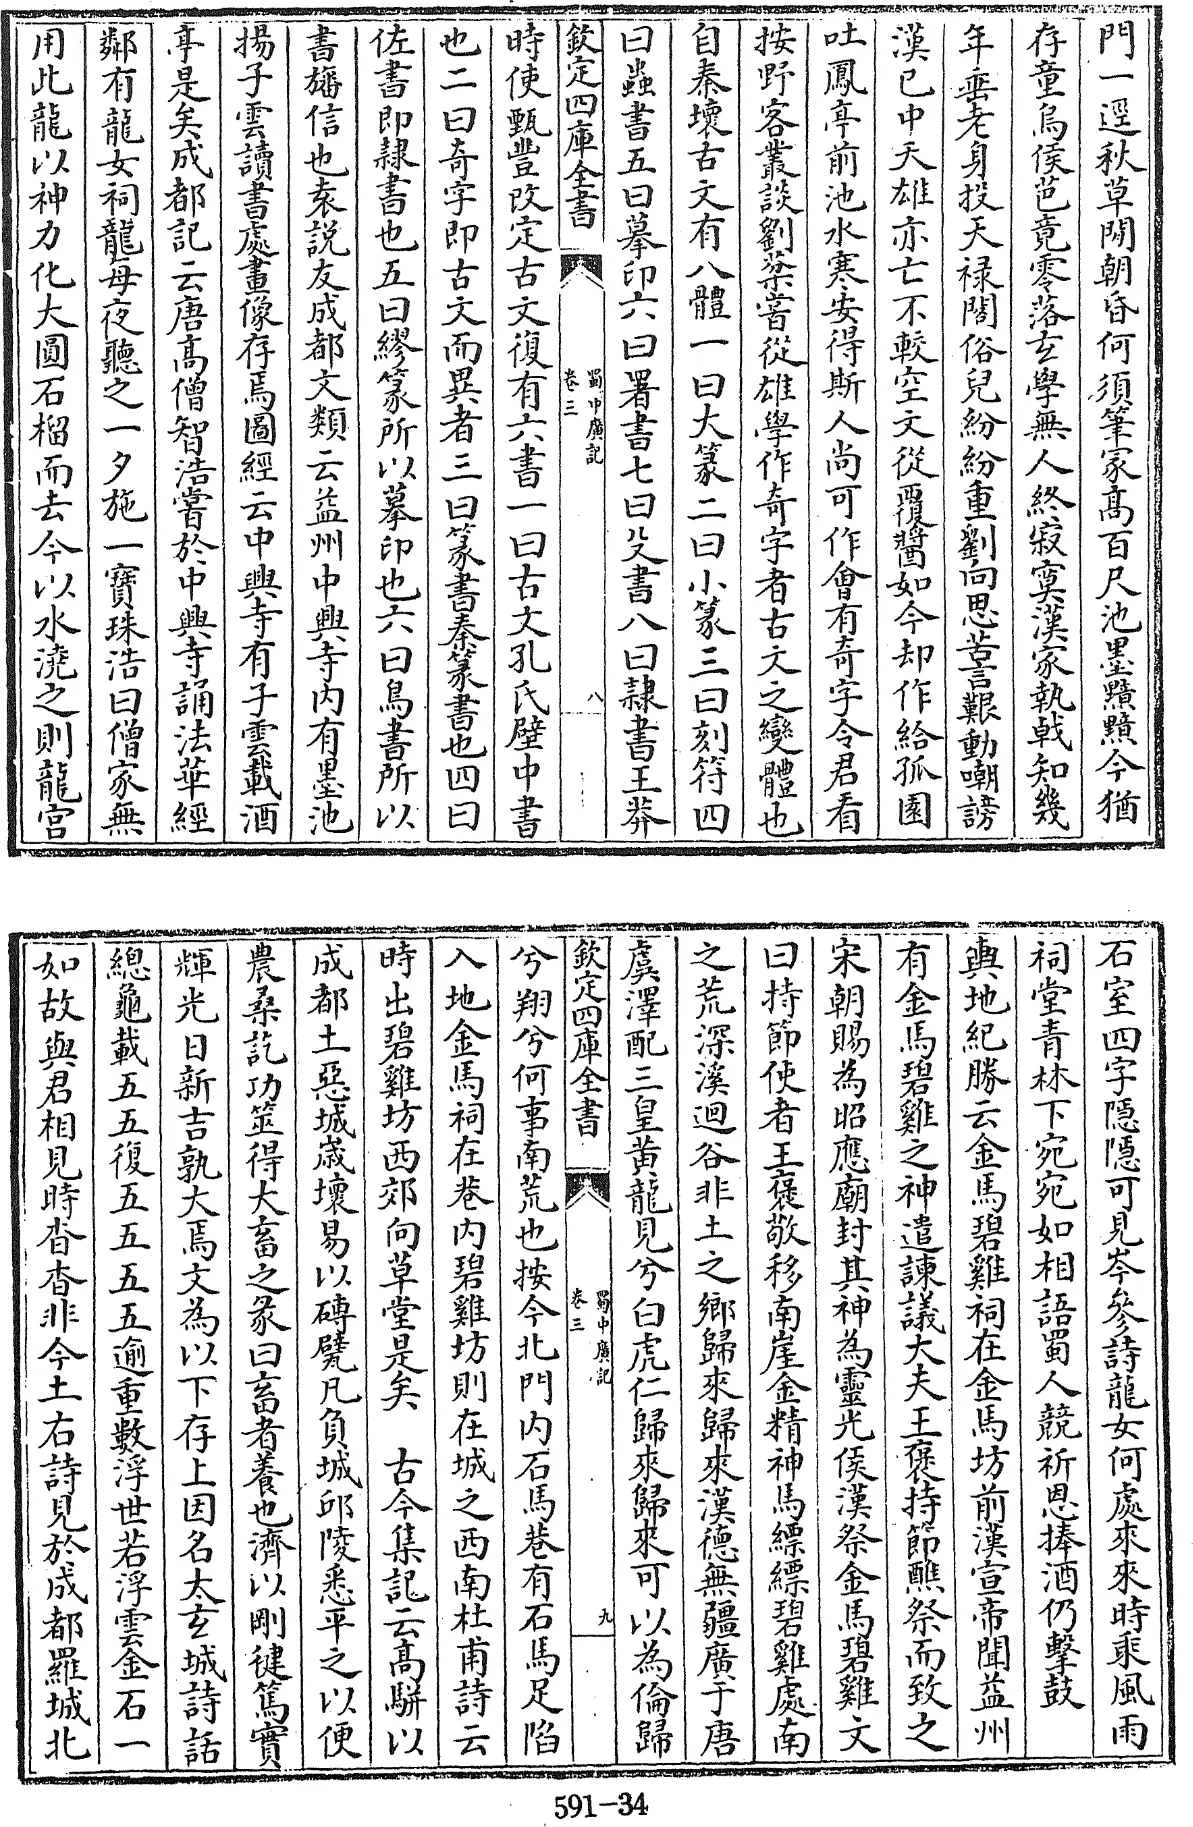 門一逕秋草閉朝昏何須筆冢髙百尺池墨黯黯今猶
存童烏侯芭竟零落玄學無人終寂寞漢家執戟知幾
年垂老身投天禄閣俗兒紛紛重劉向思苦言艱動嘲謗
漢已中天雄亦亡不較空文從覆醬如今却作給孤園
吐鳳亭前池水寒安得斯人尚可作㑹有奇字令君看
按野客叢談劉棻嘗從雄學作奇字者古文之變體也
自秦壊古文有八體一曰大篆二曰小篆三曰刻符四
曰蟲書五曰摹印六曰署書七曰殳書八曰隷書王莽
欽定四庫全書
蜀中廣記
卷三
八
時使甄豐改定古文復有六書一曰古文孔氏壁中書
也二曰奇字即古文而異者三曰篆書秦篆書也四曰
佐書即隷書也五曰繆篆所以摹印也六曰鳥書所以
書旛信也袁説友成都文類云益州中興寺内有墨池
揚子雲讀書處畫像存焉圖經云中興寺有子雲載酒
亭是矣成都記云唐髙僧智浩嘗於中興寺誦法華經
鄰有龍女祠龍每夜聽之一夕施一寶珠浩曰僧家無
用此龍以神力化大圓石榴而去今以水澆之則龍宫
石室四字隱隱可見岑參詩龍女何處來來時乘風雨
祠堂青林下宛宛如相語蜀人競祈恩捧酒仍擊鼓
輿地紀勝云金馬碧雞祠在金馬坊前漢宣帝聞益州
有金馬碧雞之神遣諫議大夫王褒持節醮祭而致之
宋朝賜為昭應廟封其神為靈光侯漢祭金馬碧雞文
曰持節使者王褒敬移南崖金精神馬縹縹碧雞處南
之荒深溪迴谷非土之鄉歸來歸來漢德無疆廣于唐
虞澤配三皇黄龍見兮白虎仁歸來歸來可以為倫歸
欽定四庫全書
蜀中廣記
卷三
九
兮翔兮何事南荒也按今北門内石馬巷有石馬足陷
入地金馬祠在巷内碧雞坊則在城之西南杜甫詩云
時出碧雞坊西郊向草堂是矣　古今集記云髙駢以
成都土惡城歳壞易以磚甓凡負城邱陵悉平之以便
農桑訖功筮得大畜之彖曰畜者養也濟以剛健篤實
輝光日新吉孰大焉文為以下存上因名太玄城詩話
總龜載五五復五五五五逾重數浮世若浮雲金石一
如故與君相見時杳杳非今土右詩見於成都羅城北
591-34